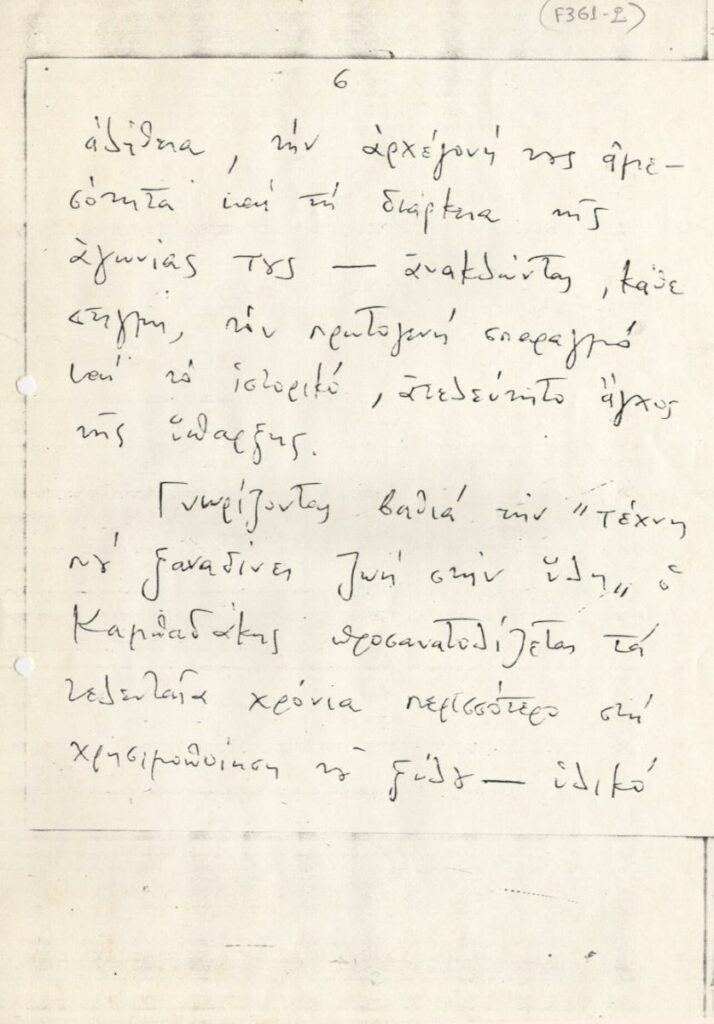 (F361-2)
6
ἀλήθεια, τήν ἀρχέγονή τους ἀμε-
σότητα καί τή διάρκεια τῆς
ἀγωνίας τους — ἀνακλώντας, κάθε
στιγμή, τόν πρωτογενή σπαραγμό
καί τό ἱστορικό, ἀτελεύτητο ἄγχος
τῆς ὕπαρξης.
Γνωρίζοντας βαθιά τήν "τέχνη
πού ξαναδίνει ζωή στήν ὕλη„ ὁ
Καμπαδάκης προσανατολίζεται τά
τελευταῖα χρόνια περισσότερο στή
χρησιμοποίηση τοῦ ξύλου — ὑλικό